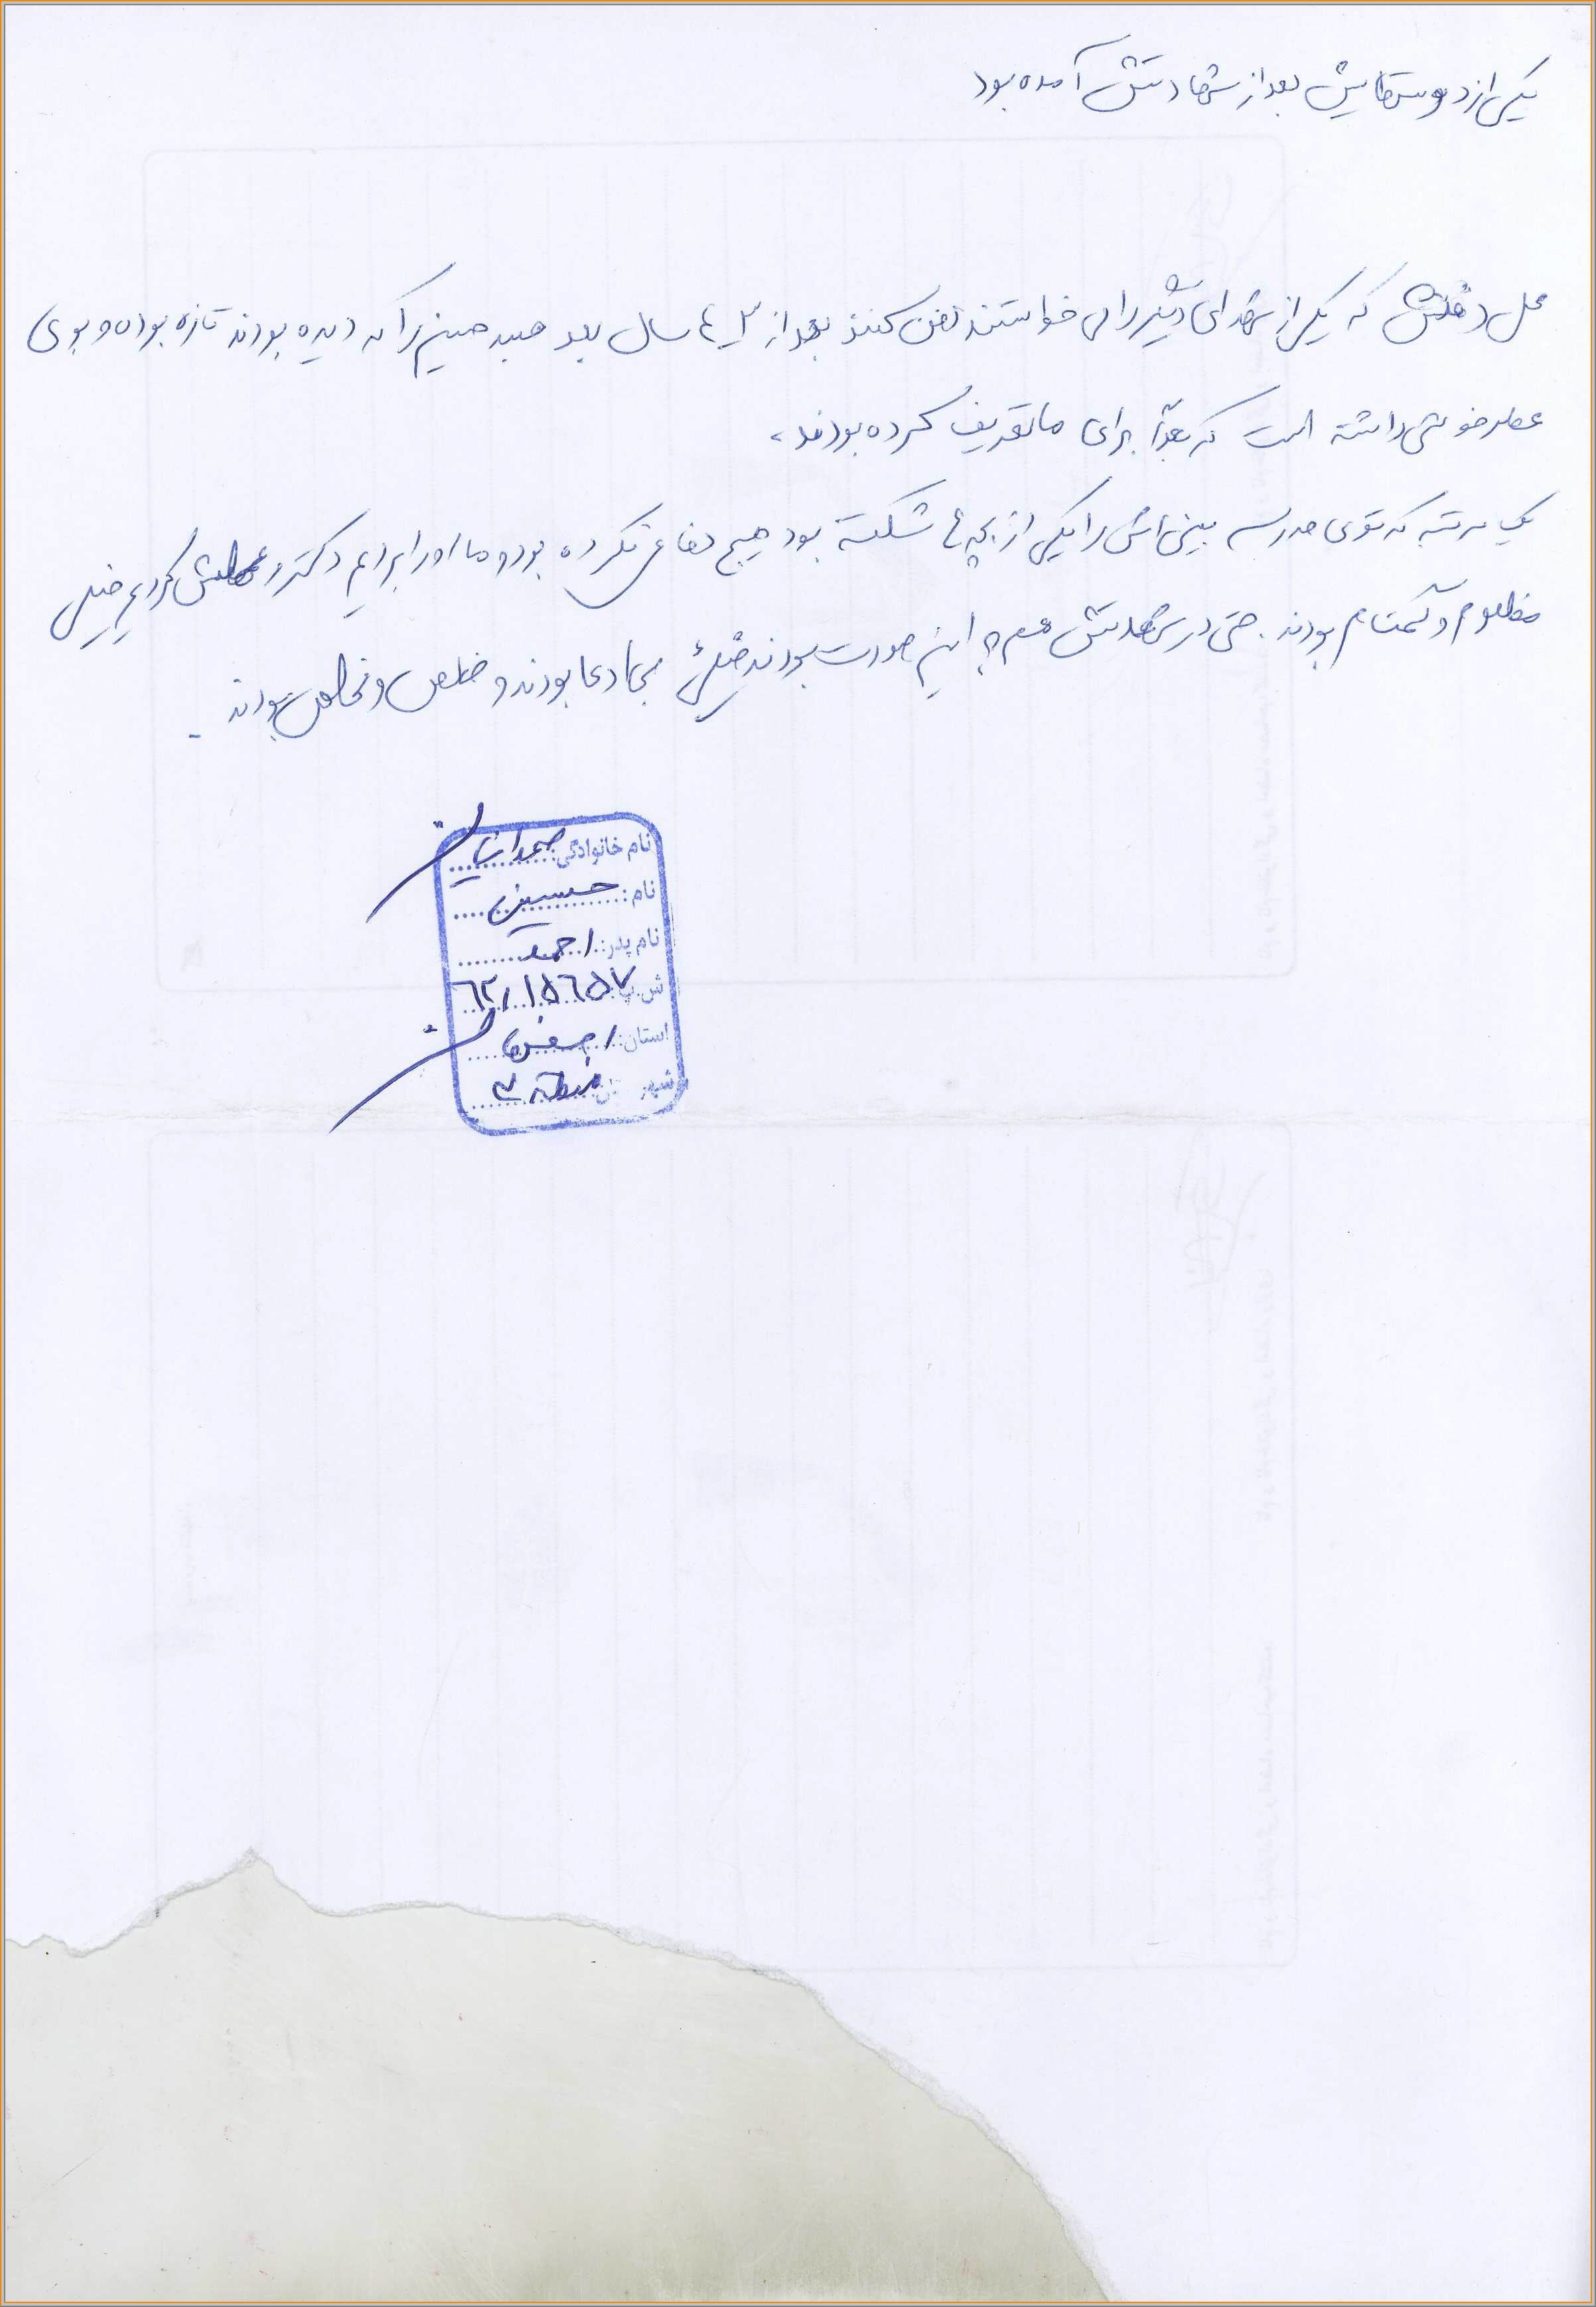 یکی از دوستهایش بعد از شهادتش آمده بود
محل دفنش که یکی از شهدای دیگر را می خواستند دفن کنند بعد از ۳ یا ٤ سال بعد جسد حسین را که دیده بودند تازه بوده و بوی
عطر خوشی داشته است که بعداً برای ما تعریف کرده بودند.
یک مرتبه که توی مدرسه بینی اش را یکی از بچه ها شکسته بود هیچ دفاعی نکرده بود و ما او را بردیم دکتر و عملش کردیم خیلی
مظلوم و گمنام بودند. حتی در شهادتش هم به این صورت بودند خیلی بی ادعا بودند و خالص و مخلص بودند.
نام خانوادگی: صمدانیان
نام: حسین
نام پدر: احمد
ش پ: ٦٢/١٥٦٥٧
استان: اصفهان
شهر منطقه ۳